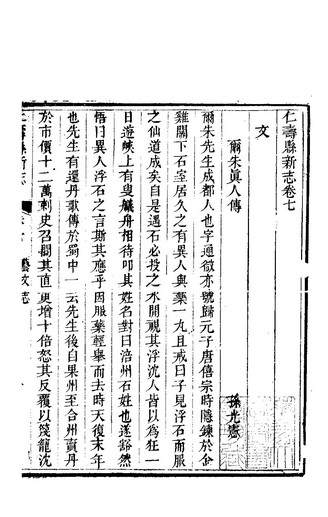 仁壽縣新志卷七
文
爾朱眞人傳
孫光憲
爾朱先生成都人也字通微亦號歸元子唐僖宗時隱鍊於金
雞關下石室居久之有異人與藥一丸且戒曰子見浮石而服
之仙道成矣自是遇石必投之水開視其浮沈人皆以爲狂一
日遊峽上有叟艤舟相待叩其姓名對曰涪州石姓也遂豁然
悟曰異人浮石之言斯其應乎因服藥輕舉而去時天復末年
也先生有還丹歌傳於蜀中一云先生後自果州至合州賣丹
於市價十二萬刺史召問其直更增十倍怒其反覆以篾籠沈
仁壽縣新志
藝文志